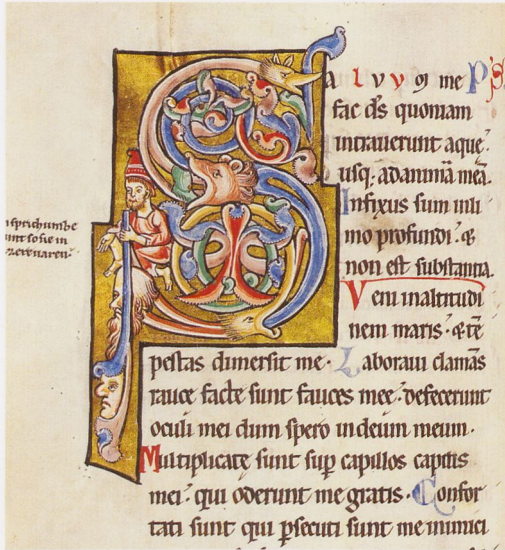 S
A l v v ꝯ me P
fac dſ quoniam
intrauerunt aque.
uſq. ad animã meã.
Infixus ſum in li
mo profundi. &
non eſt ſubſtantia.
Veni in altitudi
nem maris. & tẽ
peſtas dimerſit me. Laboraui clamãs
rauce facte ſunt fauces mee. defecerunt
oculi mei dum ſpero in deum meum.
Multiplicate ſunt ſup capillos capitis
mei. qui oderunt me gratis. Confor
tati ſunt qui pſecuti ſunt me inimici